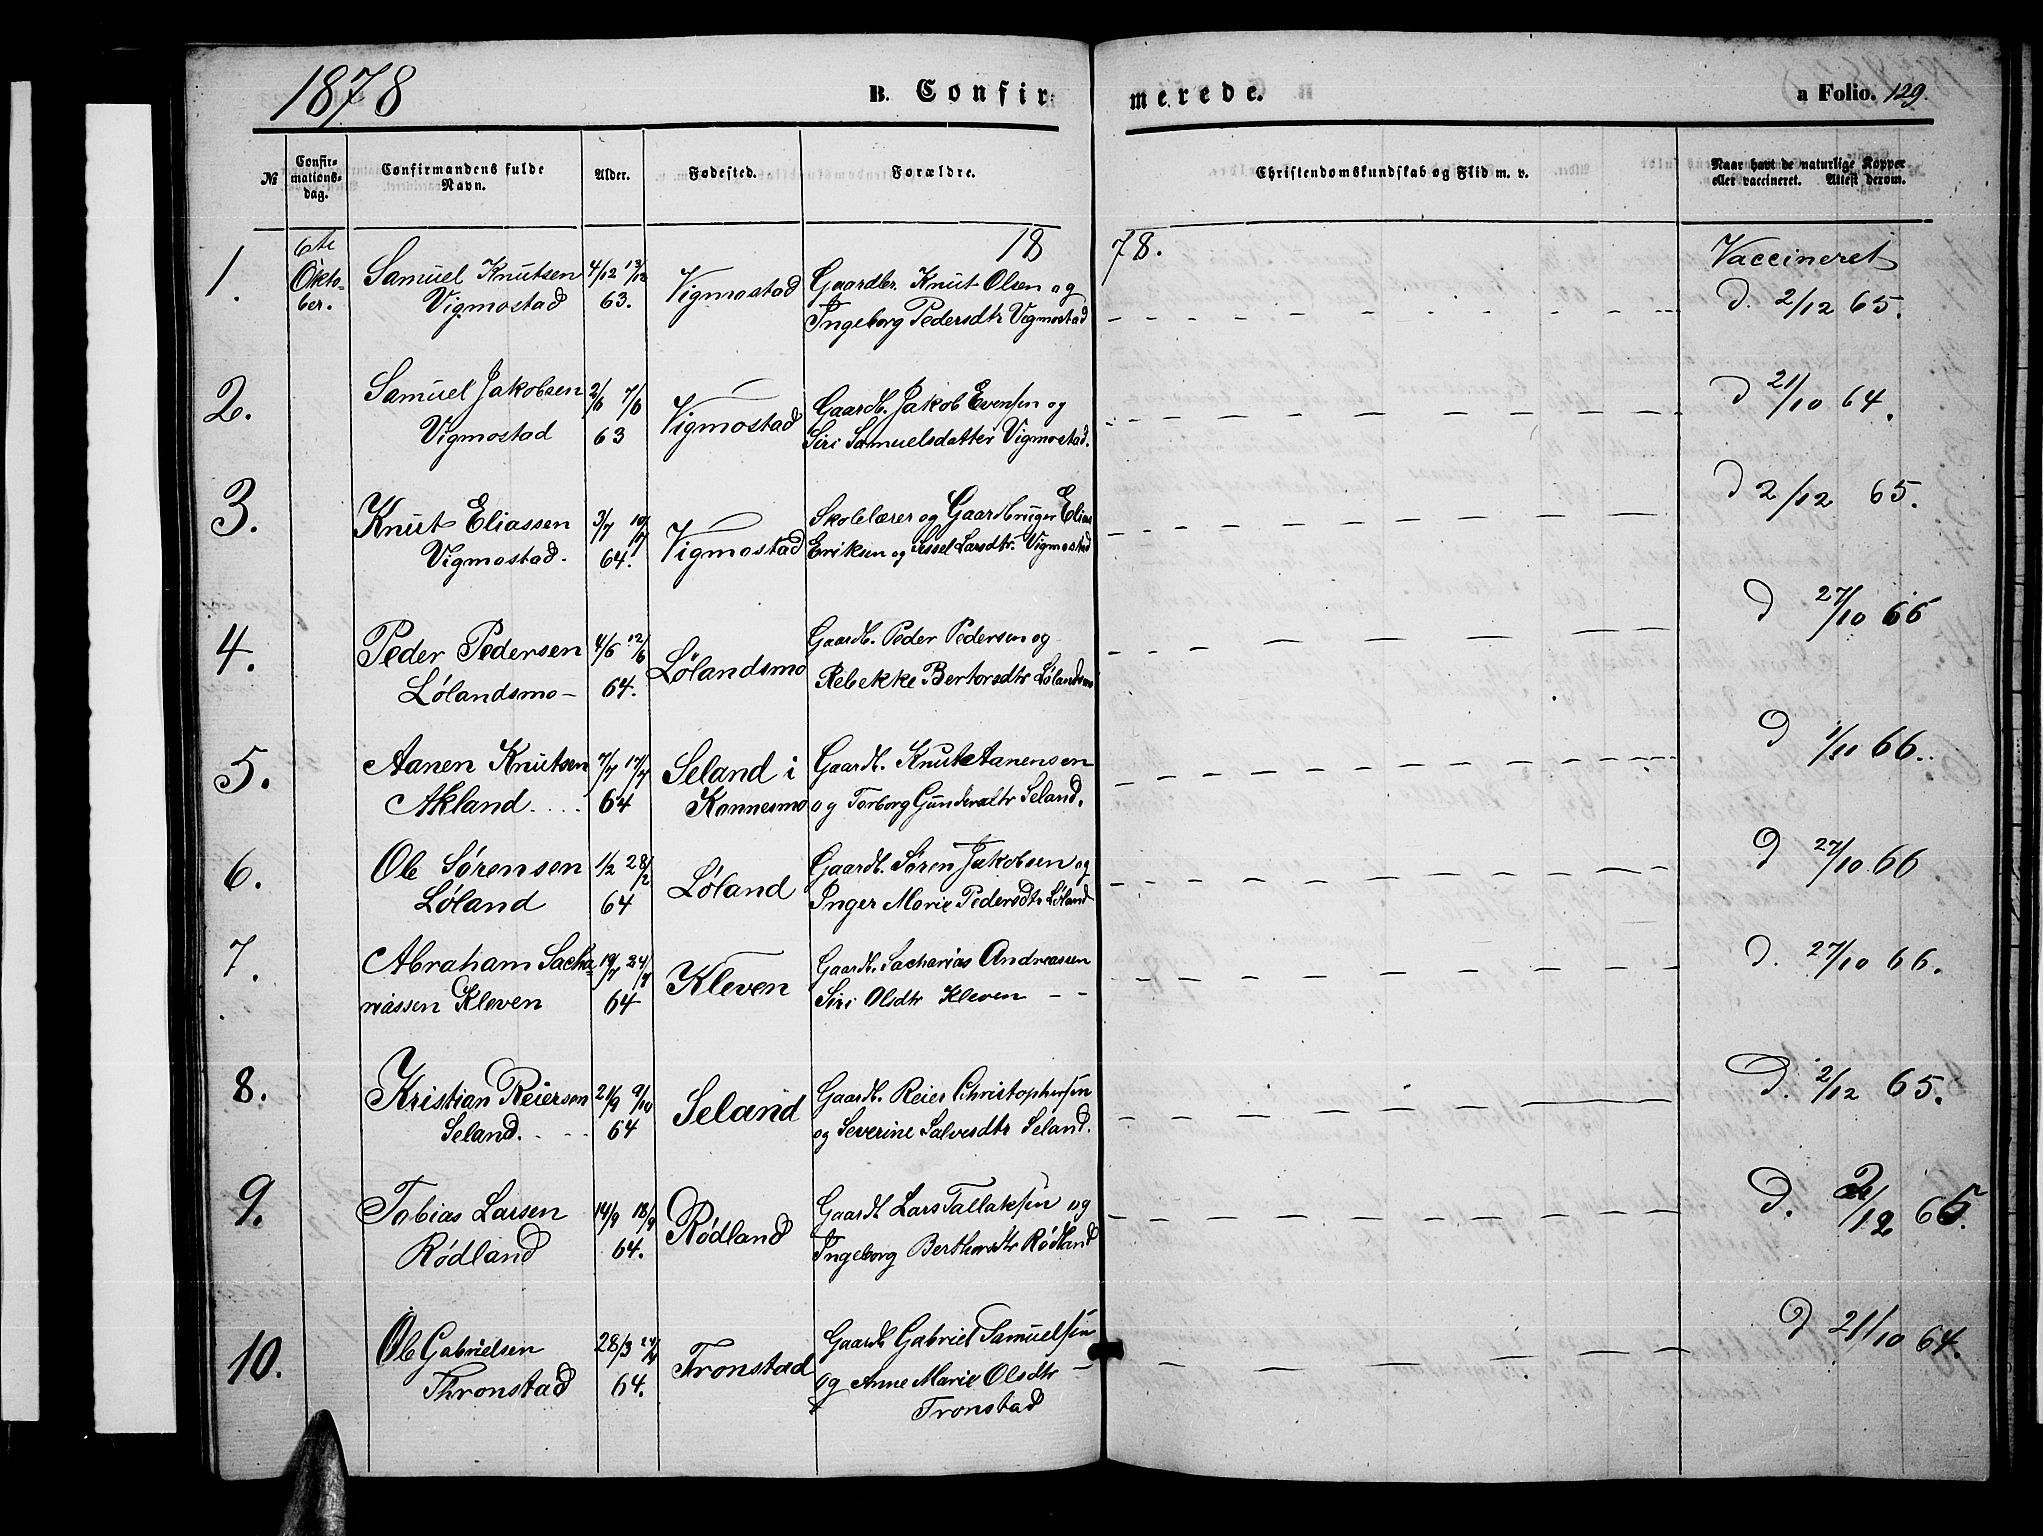 1878 B. Confir- merede. a Folio. 129.
№ Confir-mations-dag. Confirmandens fulde Navn. Alder. Fødested. Forældre. Christendomskundskab og Flid m. v. Naar havt de naturlige Kopper eller vaccineret. Attest derom.
1878.
1. 6te Oktober. Samuel Knutsen 4/12 13/12 Vigmostad Gaardbr. Knut Olsen og Vaccineret
Vigmostad 63. Ingeborg Pedersdtr Vigmostad d. 2/12 65.
2. Samuel Jakobsen 2/6 7/6 Vigmostad Gaardb. Jakob Evensen og d 21/10 64.
Vigmostad 63 Siri Samuelsdatter Vigmostad.
3. Knut Eliassen 3/7 10/7 Vigmostad Skolelærer og Gaardbruger Elias d 2/12 65.
Vigmostad. 64. Eriksen og Sissel Larsdtr. Vigmostad
4. Peder Pedersen 4/6 12/6 Lölandsmo Gaardb. Peder Pedersen og d 27/10 66
Lölandsmo - 64. Rebekke Bertorsdtr Lölandsmo
5. Aanen Knutsen 7/7 17/7 Seland i Gaardb. Knut Aanensen d 1/11 66.
Akland 64 Konnesmo og Torborg Gundersdtr Seland.
6. Ole Sørensen 1/2 28/2 Løland Gaardb. Søren Jakobsen og d 27/10 66
Løland 64 Inger Marie Pedersdtr Løland
7. Abraham Sacha- 19/7 24/7 Kleven Gaardb. Sacharias Andreassen d. 27/10 66.
riassen Kleven 64 Siri Olsdtr Kleven - -
8. Kristian Reiersen 21/9 9/10 Seland Gaardb. Reier Christophersen d. 2/12 65.
Seland. 64 og Severine Salvesdtr Seland.
9. Tobias Larsen 14/9 18/9 Rødland Gaardb. Lars Tallaksen og d. 2/12 65.
Rødland 64. Ingeborg Berthorsdtr Rødland
10. Ole Gabrielsen 28/3 Tronstad Gaardb Gabriel Samuelsen d 21/10 64.
Thronstad 64. og Anne Marie Olsdtr -
Tronstad